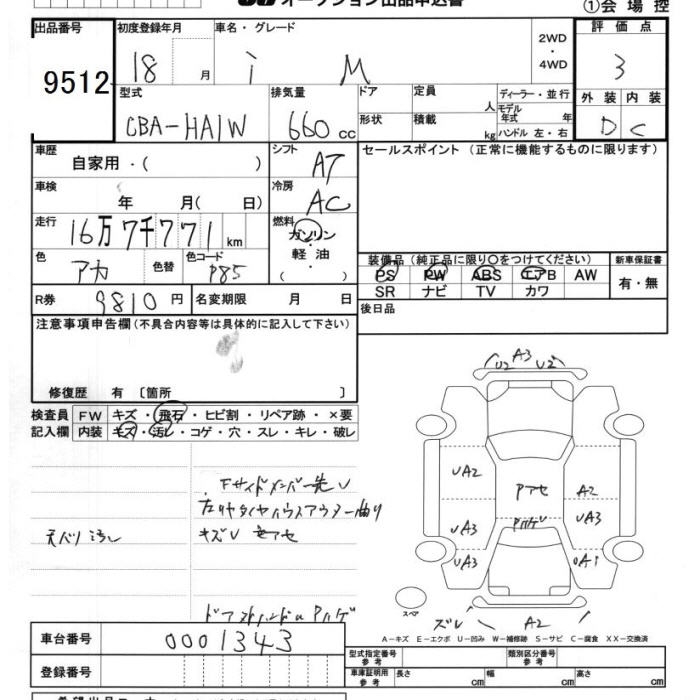 オークション出品申込書
①会場控
出品番号 初度登録年月 車名・グレード 評価点
9512 18 月 i M 2WD ・ 4WD 3
型式 排気量 ドア 定員 ディーラー・並行 外装 内装
CBA-HA1W 660 cc 人 モデル年式 年 D C
形状 積載 kg ハンドル 左・右
車歴 シフト セールスポイント(正常に機能するものに限ります)
自家用・( ) AT
車検 冷房
年 月( 日) AC
走行 燃料
16万7千771 km ガソリン・軽油・( )
色 色替 色コード 装備品(純正品に限り○をつけてください) 新車保証書
アカ P85 PS PW ABS エアB AW 有・無
SR ナビ TV カワ
R券 9810 円 名変期限 月 日 後日品
注意事項申告欄(不具合内容等は具体的に記入して下さい)
修復歴 有 〔箇所 〕
検査員 FW キズ・飛石・ヒビ割・リペア跡・×要
記入欄 内装 キズ・汚レ・コゲ・穴・スレ・キレ・破レ
U2 A3 U2
UA2 A2
Pアセ
UA3 Pハゲ UA3
UA3 UA1
Fサイドメンバー先U
左リヤタイヤハウスアウター曲り
天バリ汚レ キズU
スペア ズレ A2
A－キズ E－エクボ U－凹み W－補修跡 S－サビ C－腐食 XX－交換済
車台番号 0001343
型式指定番号 参考 類別区分番号 参考
登録番号 車庫証明用 参考 長さ cm 幅 cm 高さ cm